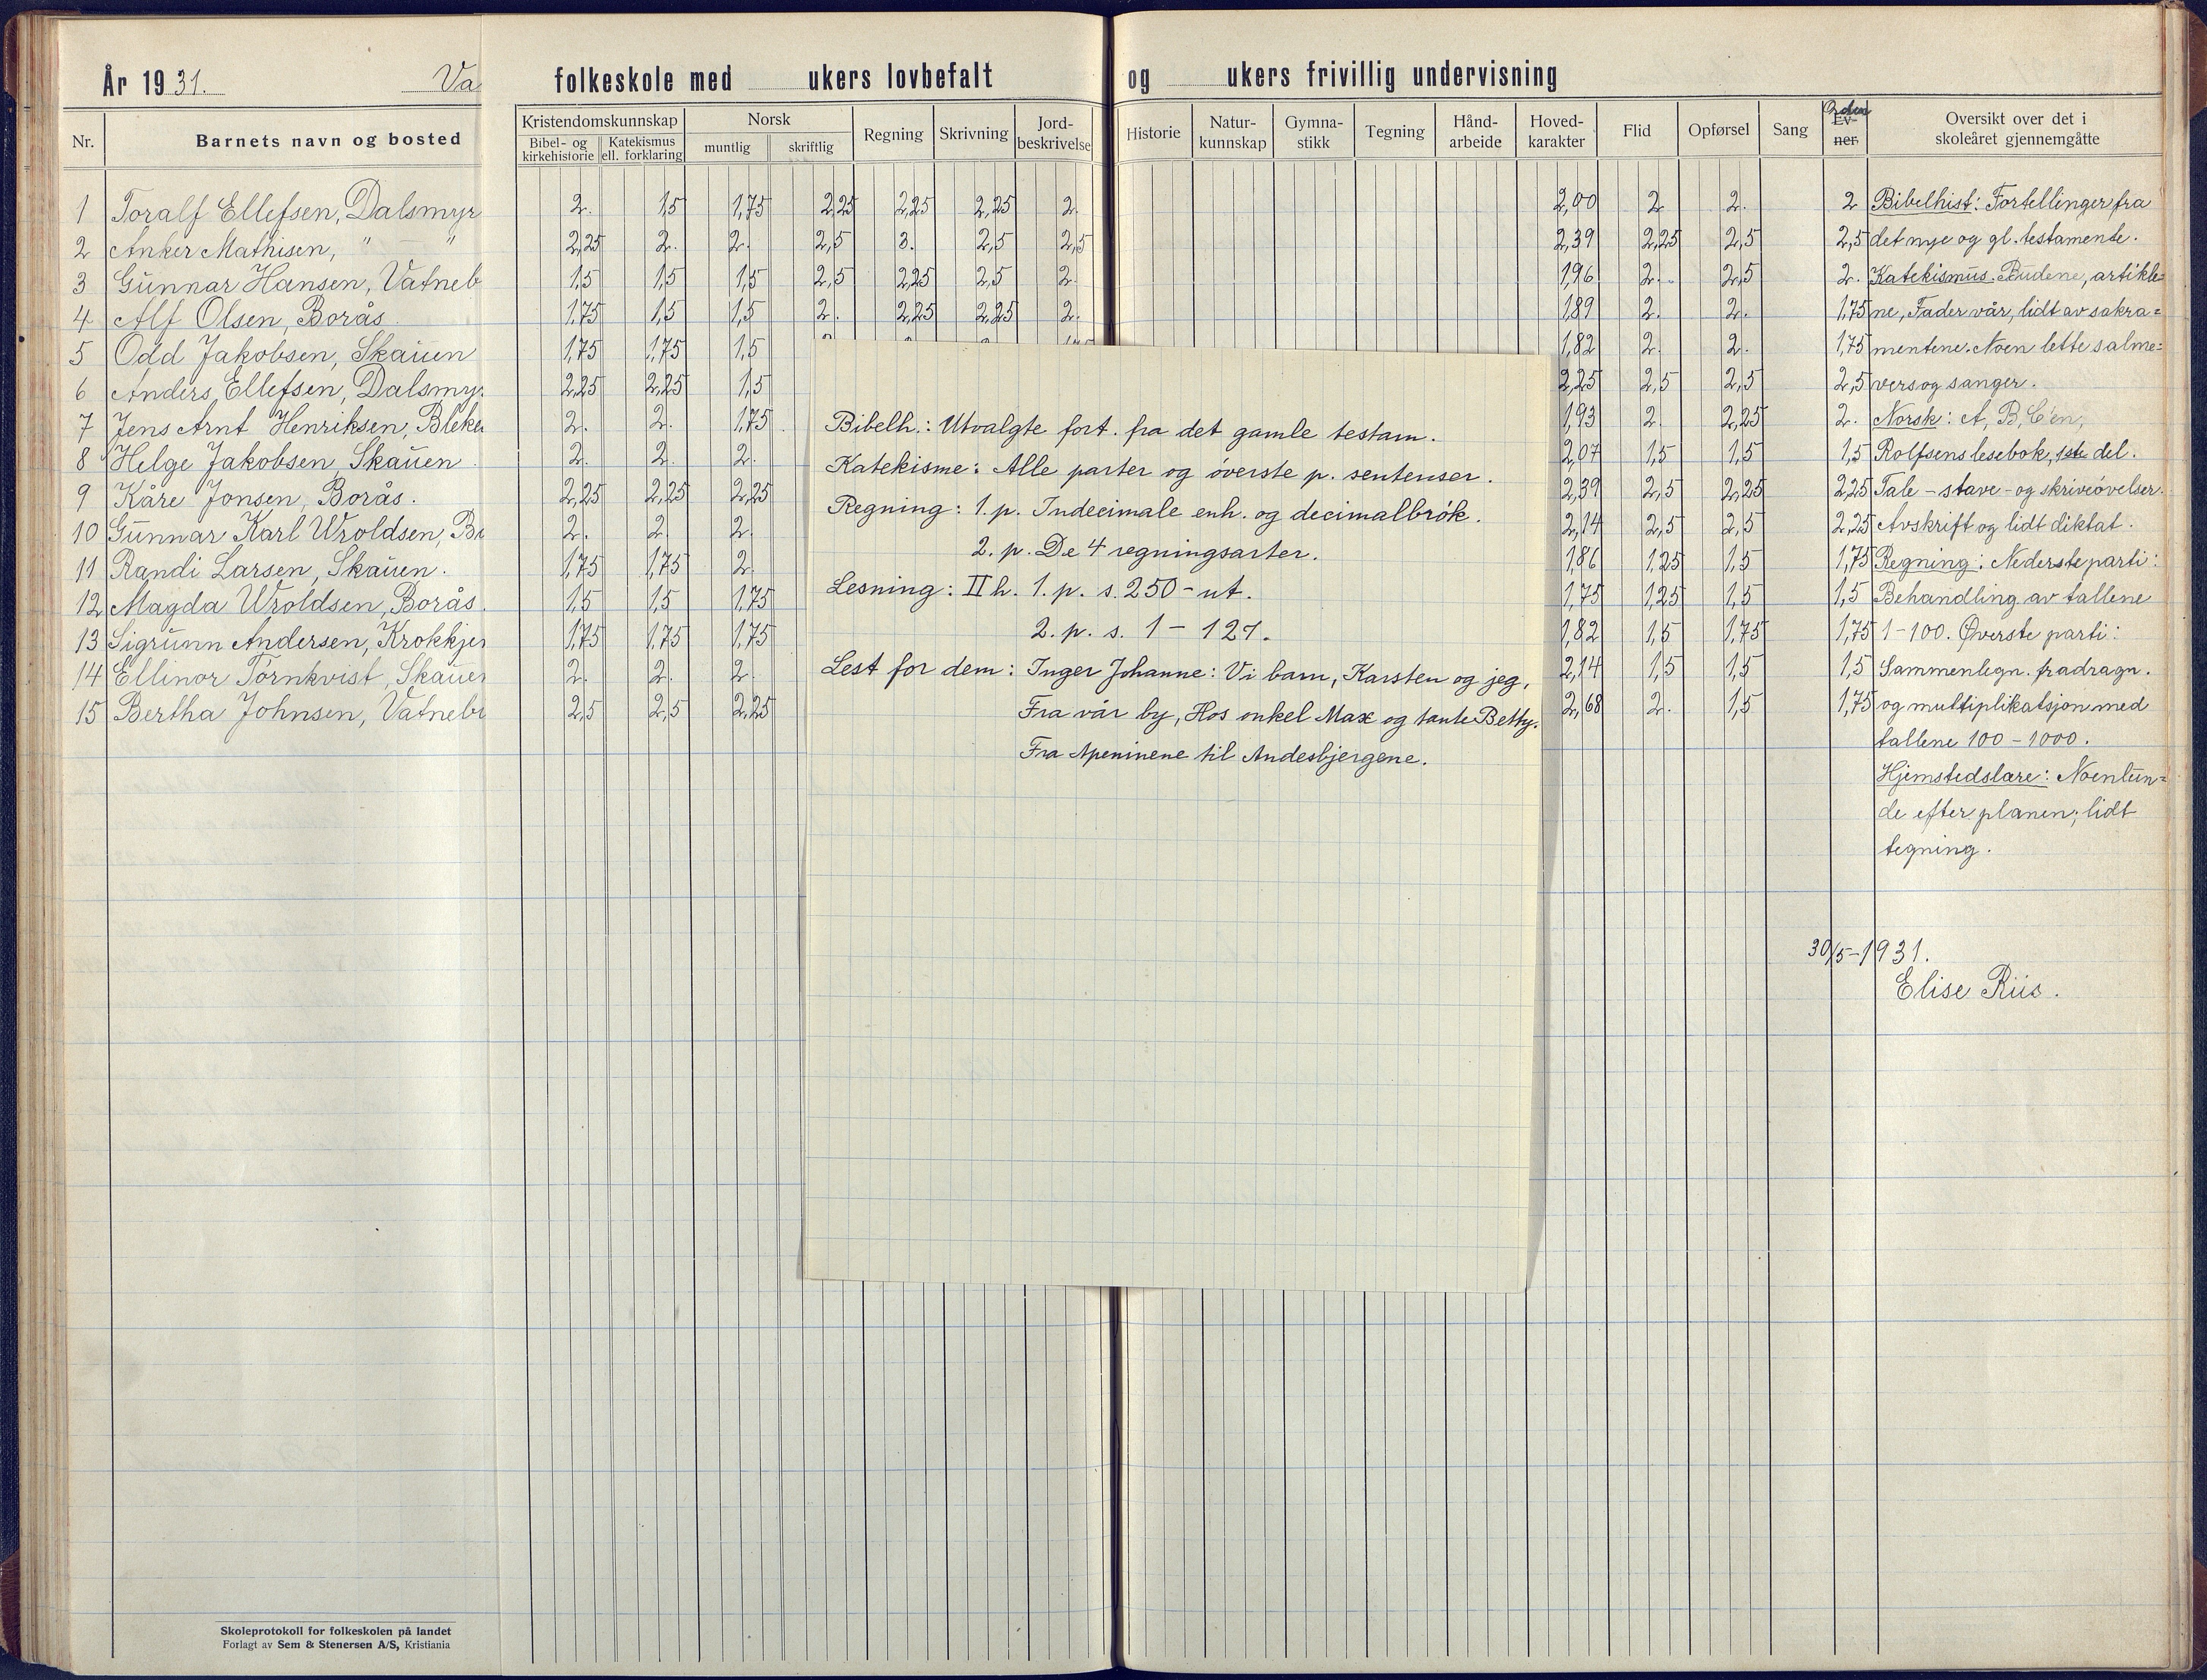 År 1931. Va folkeskole med ukers lovbefalt og ukers frivillig undervisning
Nr. Barnets navn og bosted Kristendomskunnskap Bibel- og kirkehistorie Katekismus ell. forklaring Norsk muntlig skriftlig Regning Skrivning Jord-beskrivelse Historie Natur-kunnskap Gymna-stikk Tegning Hånd-arbeide Hoved-karakter Flid Opførsel Sang Ev-ner Orden Oversikt over det i skoleåret gjennemgåtte
1 Toralf Ellefsen, Dalsmyr 2. 1,5 1,75 2,25 2,25 2,25 2. 2,00 2 2. 2 Bibelhist: Fortellinger fra
2 Anker Mathisen, " — " 2,25 2. 2. 2,5 3. 2,5 2,5 2,39 2,25 2,5 2,5 det nye og gl. testamente.
3 Gunnar Hansen, Vatneb 1,5 1,5 1,5 2,5 2,25 2,5 2. 1,96 2. 2,5 2. Katekismus. Budene, artikle=
4 Alf Olsen, Borås. 1,75 1,5 1,5 2. 2,25 2,25 2. 1,89 2. 2. 1,75 ne, Fader vår, lidt av sakra=
5 Odd Jakobsen, Skauen 1,75 1,75 1,5 1,82 2. 2. 1,75 mentene. Noen lette salme=
6 Anders Ellefsen, Dalsmyr 2,25 2,25 1,5 2,25 2,5 2,5 2,5 vers og sanger.
7 Jens Arnt Henriksen, Bleke 2. 2. 1,75 1,93 2. 2,25 2. Norsk: A, B, C'en,
8 Helge Jakobsen, Skauen. 2. 2. 2. 2,07 1,5 1,5 1,5 Rolfsens lesebok, 1ste del.
9 Kåre Jonsen, Borås. 2,25 2,25 2,25 2,39 2,5 2,25 2,25 Tale- stave- og skriveøvelser.
10 Gunnar Karl Wroldsen, Bo 2. 2. 2. 2,14 2,5 2,5 2,25 Avskrift og lidt diktat.
11 Randi Larsen, Skauen. 1,75 1,75 2. 1,86 1,25 1,5 1,75 Regning: Nederste parti:
12 Magda Wroldsen, Borås. 1,5 1,5 1,75 1,75 1,25 1,5 1,5 Behandling av tallene
13 Sigrunn Andersen, Krokkjer 1,75 1,75 1,75 1,82 1,5 1,75 1,75 1-100. Øverste parti:
14 Ellinor Törnkvist, Skauen 2. 2. 2. 2,14 1,5 1,5 1,5 Sammenlegn. fradragn.
15 Bertha Johnsen, Vatnebr 2,5 2,5 2,25 2,68 2. 1,5 1,75 og multiplikatsjon med
tallene 100-1000.
Hjemstedslære: Noenlun=
de efter planen; lidt
tegning.
30/5-1931.
Elise Riis.
Bibelh.: Utvalgte fort. fra det gamle testam.
Katekisme: Alle parter og överste p. sentenser.
Regning: 1. p. Indecimale enh. og decimalbrök.
2. p. De 4 regningsarter.
Lesning: II h. 1. p. s. 250-ut.
2. p. s. 1-127.
Lest for dem: Inger Johanne: Vi barn, Karsten og jeg,
Fra vår by, Hos onkel Max og tante Betty.
Fra Apeninene til Andesbjergene.
Skoleprotokoll for folkeskolen på landet
Forlagt av Sem & Stenersen A/S, Kristiania